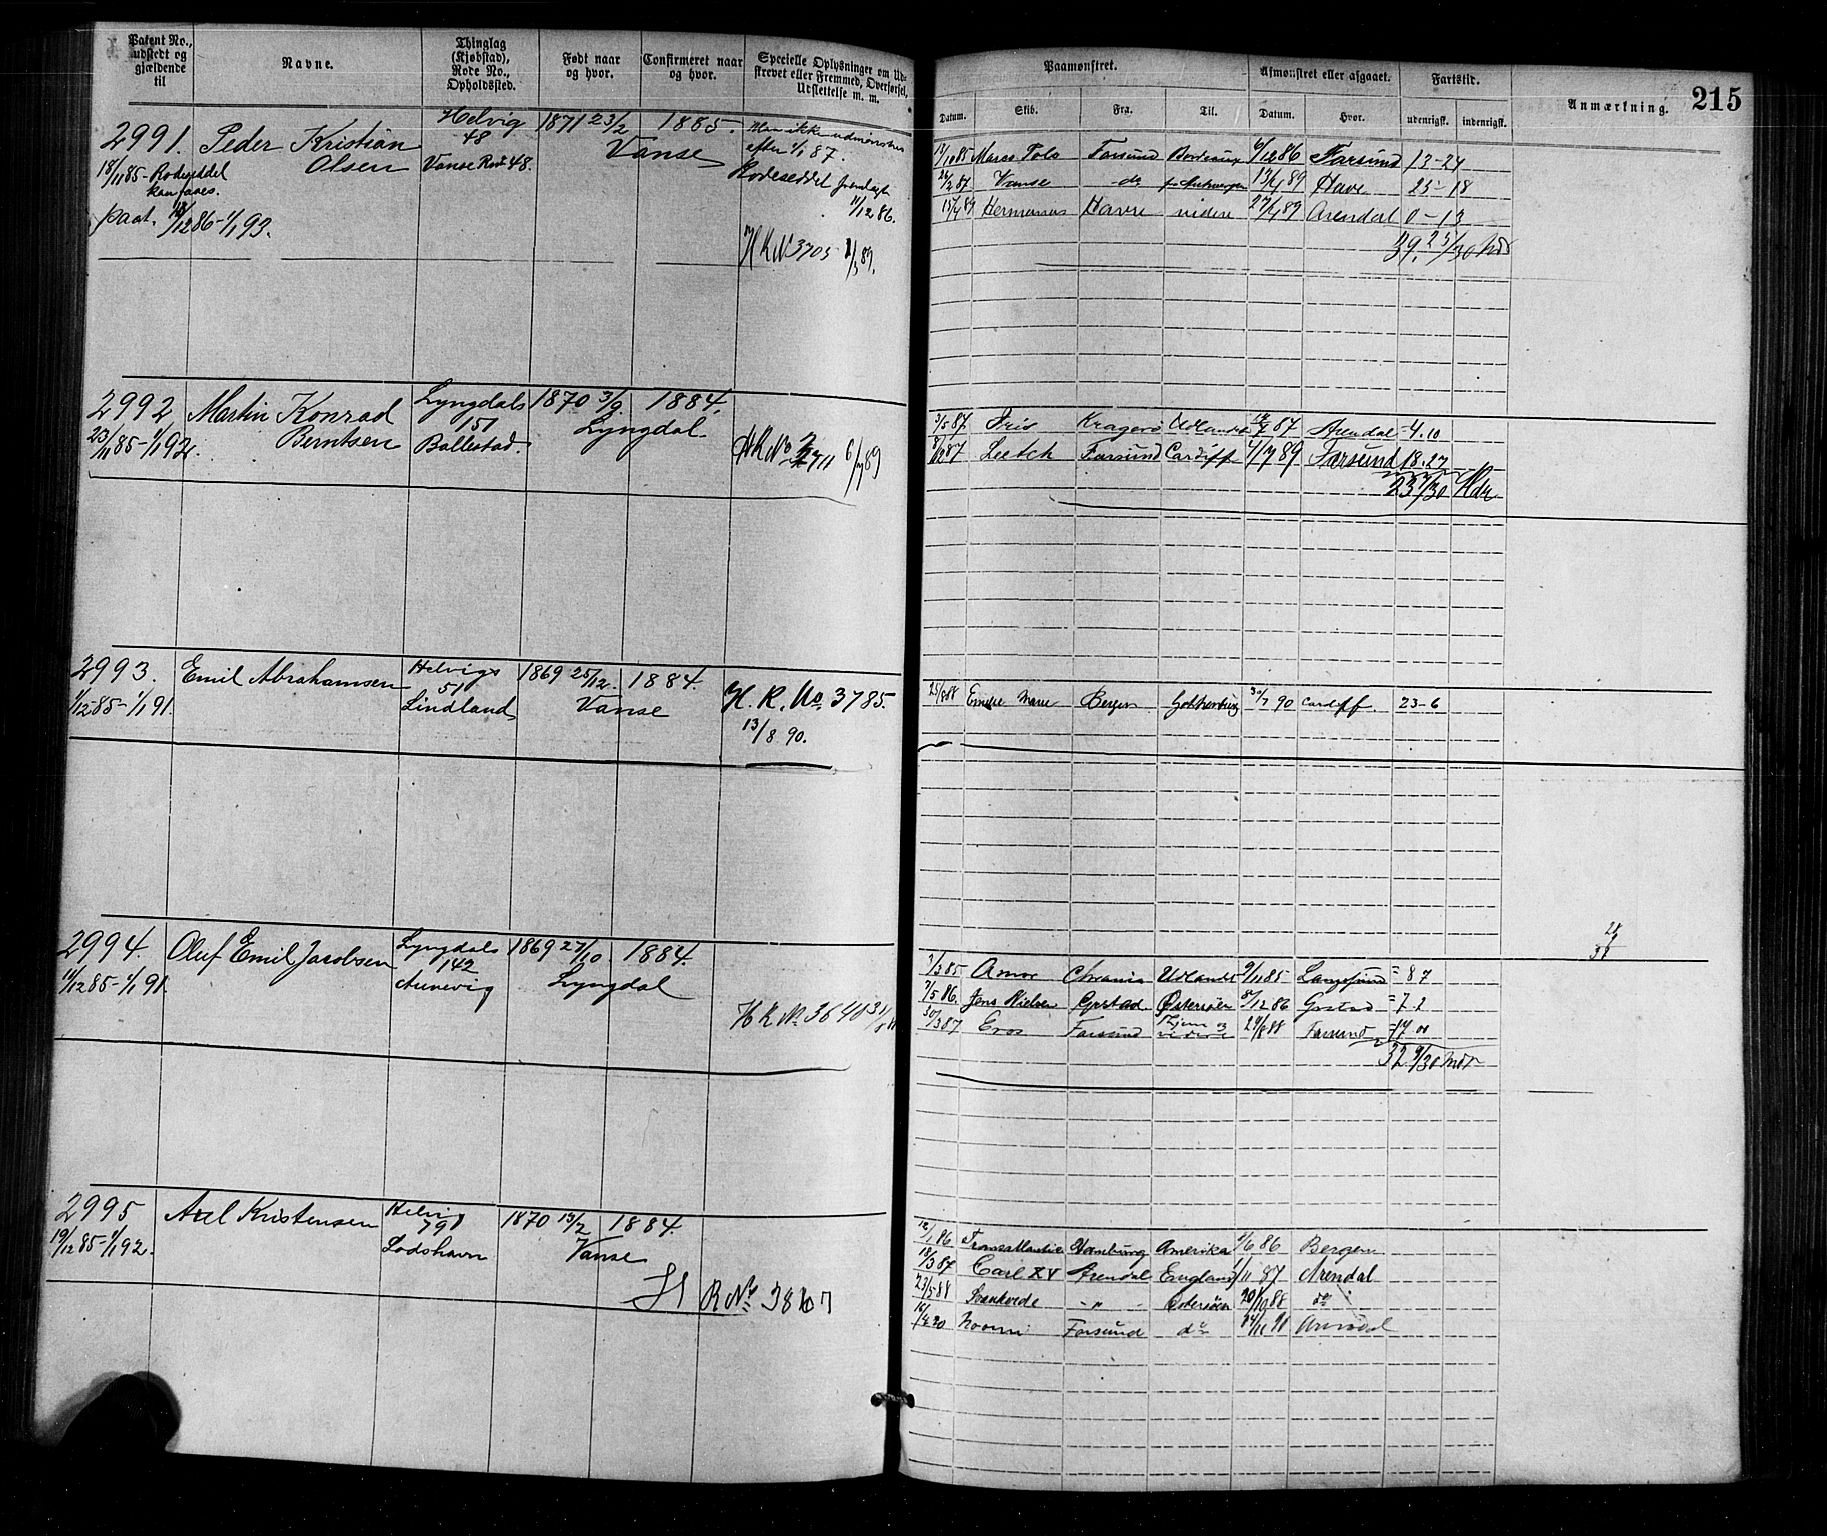 Patent No., udstedt og gjældende til
Navne.
Thinglag (Kjøbstad), Rode No., Opholdssted.
Født naar og hvor.
Confirmeret naar og hvor.
Specielle Oplysninger om Udstrevet eller Fremmed, Overførsel, Udslettelse m. m.
2991. Peder Kristian Olsen Helvig 48 1871 23/2 1885.
Vanse Rode 48. Vanse
18/11 85 - Rodeseddel
paat. 18/12 86 - 1/1 93.
efter 1/1 87.
Rodeseddel
11/12 86.
H R No 3705
2992 Martin Konrad Berntsen Lyngdals 151 1870 3/9. 1884.
23/11 85 - 1/1 92. Ballestad. Lyngdal
H R No 3711 6/7 89
2993. Emil Abrahamsen Helvigs 51 1869 25/12. 1884.
1/12 85 - 1/1 91. Lindland Vanse
H. R. No. 3785.
13/8 90.
2994. Oluf Emil Jacobsen Lyngdals 142 1869 27/10. 1884.
11/12 85 - 1/1 91. Aunevig Lyngdal
H R No 3640
2995 Axel Kristensen Helvig 79 1870 13/2 1884.
19/12 85 - 1/1 92. Lodshavn Vanse
H R No 3867
215
Paamønstret.
Afmønstret eller afgaaet.
Fartstid.
Anmærkning.
Datum. Skib. Fra. Til. Datum. Hvor. udenrigsk. indenrigsk.
Marco Polo Farsund Bordeaux 6/12 86 Farsund 13-24
26/2 87 Vanse do Antwerpen 13/4 89 Havre 25-18
15/4 89 Hermanos Havre videre 27/7 89 Arendal 0-13
39. 25/30 Mdr
3/5 87 Iris Kragerø Udlandet Arendal - 4.10
8/12 87 Leetch Farsund Cardiff 4/7 89 Farsund 18.27
23 7/30 Mdr
25/8 88 Emelie Marie Bergen Gothenburg 30/7 90 Cardiff. 23-6
3/3 85 Amor Chrania Udlandet 9/11 85 Langesund = 8 7
7/5 86. Jens Nielsen Grstad Østersøen 8/12 86 Grstad = 7.2
30/3 87 Eros Farsund videre 29/8 88 Farsund = 17 00
32 9/30 Mdr
12/1 86 Transatlantic Hamburg Amerika 3/6 86 Bergen
18/3 87 Carl XV Arendal England 11 87 Arendal
23/5 88 Svankvide - " - Østersøen 20/10 88 do
Noomi Farsund do Arendal